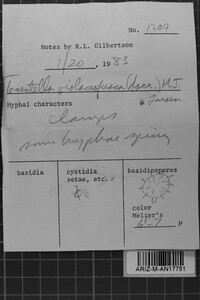 No. 1209
Notes by R.L. Gilbertson
1/20, 1983
Tomentella violaceofusca (Sacc.) M.J. Larsen
Hyphal characters
clamps
some hyphae spiny
basidia
cystidia
setae, etc.
basidiospores
color
Melzer's
6-7 μ
ARIZ-M-AN17751